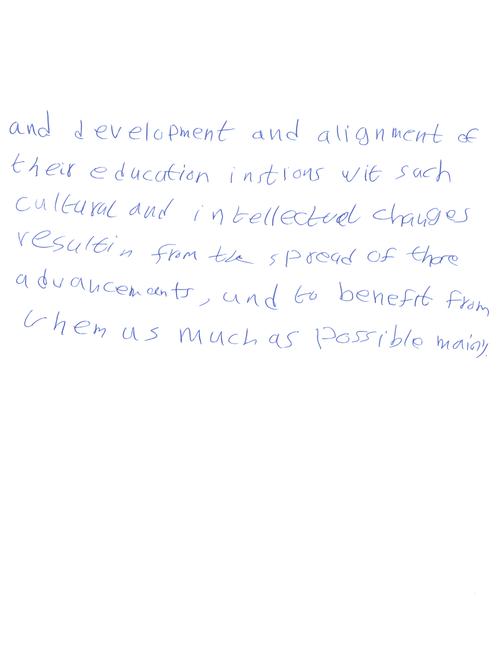 and development and alignment of
their education instions wit such
cultural and intellectual changes
resultin from the spread of those
advancements, and to benefit from
them as much as possible mainly